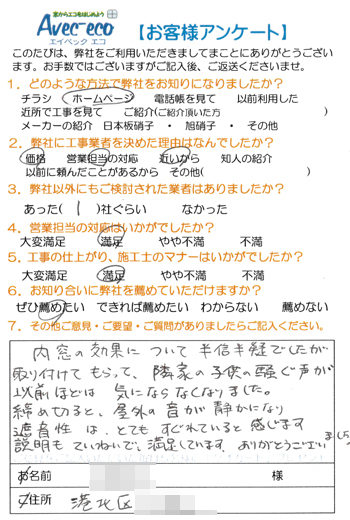 窓からエコをはじめよう
Avec-eco
エイベック エコ
【お客様アンケート】
このたびは、弊社をご利用いただきましてまことにありがとうござい
ます。お手数ではございますがご記入後、ご返送くださいませ。
1．どのような方法で弊社をお知りになりましたか？
チラシ ホームページ 電話帳を見て 以前利用した
近所で工事を見て ご紹介(ご紹介頂いた方 )
メーカーの紹介 日本板硝子・旭硝子・その他
2．弊社に工事業者を決めた理由はなんでしたか？
価格 営業担当の対応 近いから 知人の紹介
以前に頼んだことがあるから その他( )
3．弊社以外にもご検討された業者はありましたか？
あった( 1 )社ぐらい なかった
4．営業担当の対応はいかがでしたか？
大変満足 満足 やや不満 不満
5．工事の仕上がり、施工士のマナーはいかがでしたか？
大変満足 満足 やや不満 不満
6．お知り合いに弊社を薦めていただけますか？
ぜひ薦めたい できれば薦めたい わからない 薦めない
7．その他ご意見・ご要望・ご質問がありましたらご記入ください。
内窓の効果について半信半疑でしたが
取り付けてもらって、隣家の子供の騒ぐ声が
以前ほどは気にならなくなりました。
締め切ると、屋外の音が静かになり
遮音性は、とてもすぐれていると感じます
説明もていねいで、満足しています。ありがとうございました
お名前 様
ご住所 港北区